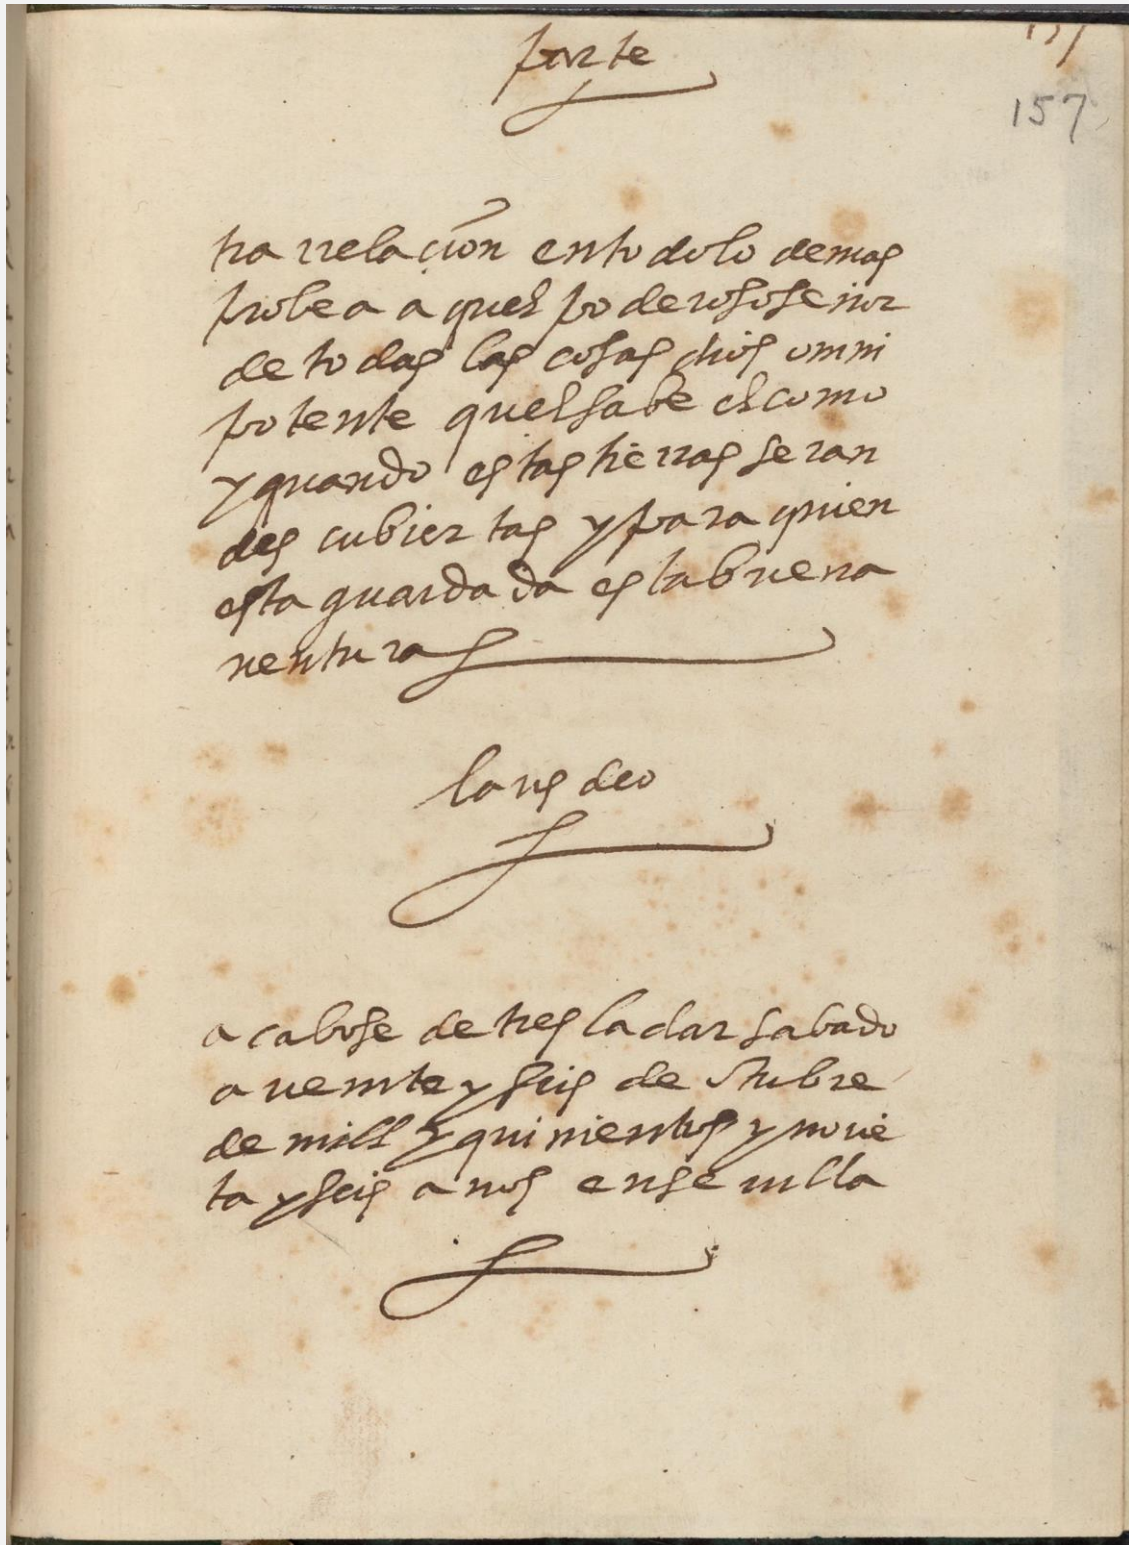 parte
157
tra rrelaçion en todo lo demas
probea aquel poderoso señor
de todas las cosas dios omni
potente quel sabe el como
y quando estas tierras seran
des cubiertas y para quien
esta guardada esta buena
uentura
laus deo
acabose de tresladar sabado
a ueinte y seis de otubre
de mill y quinientos y noue
ta y seis anos en seuilla